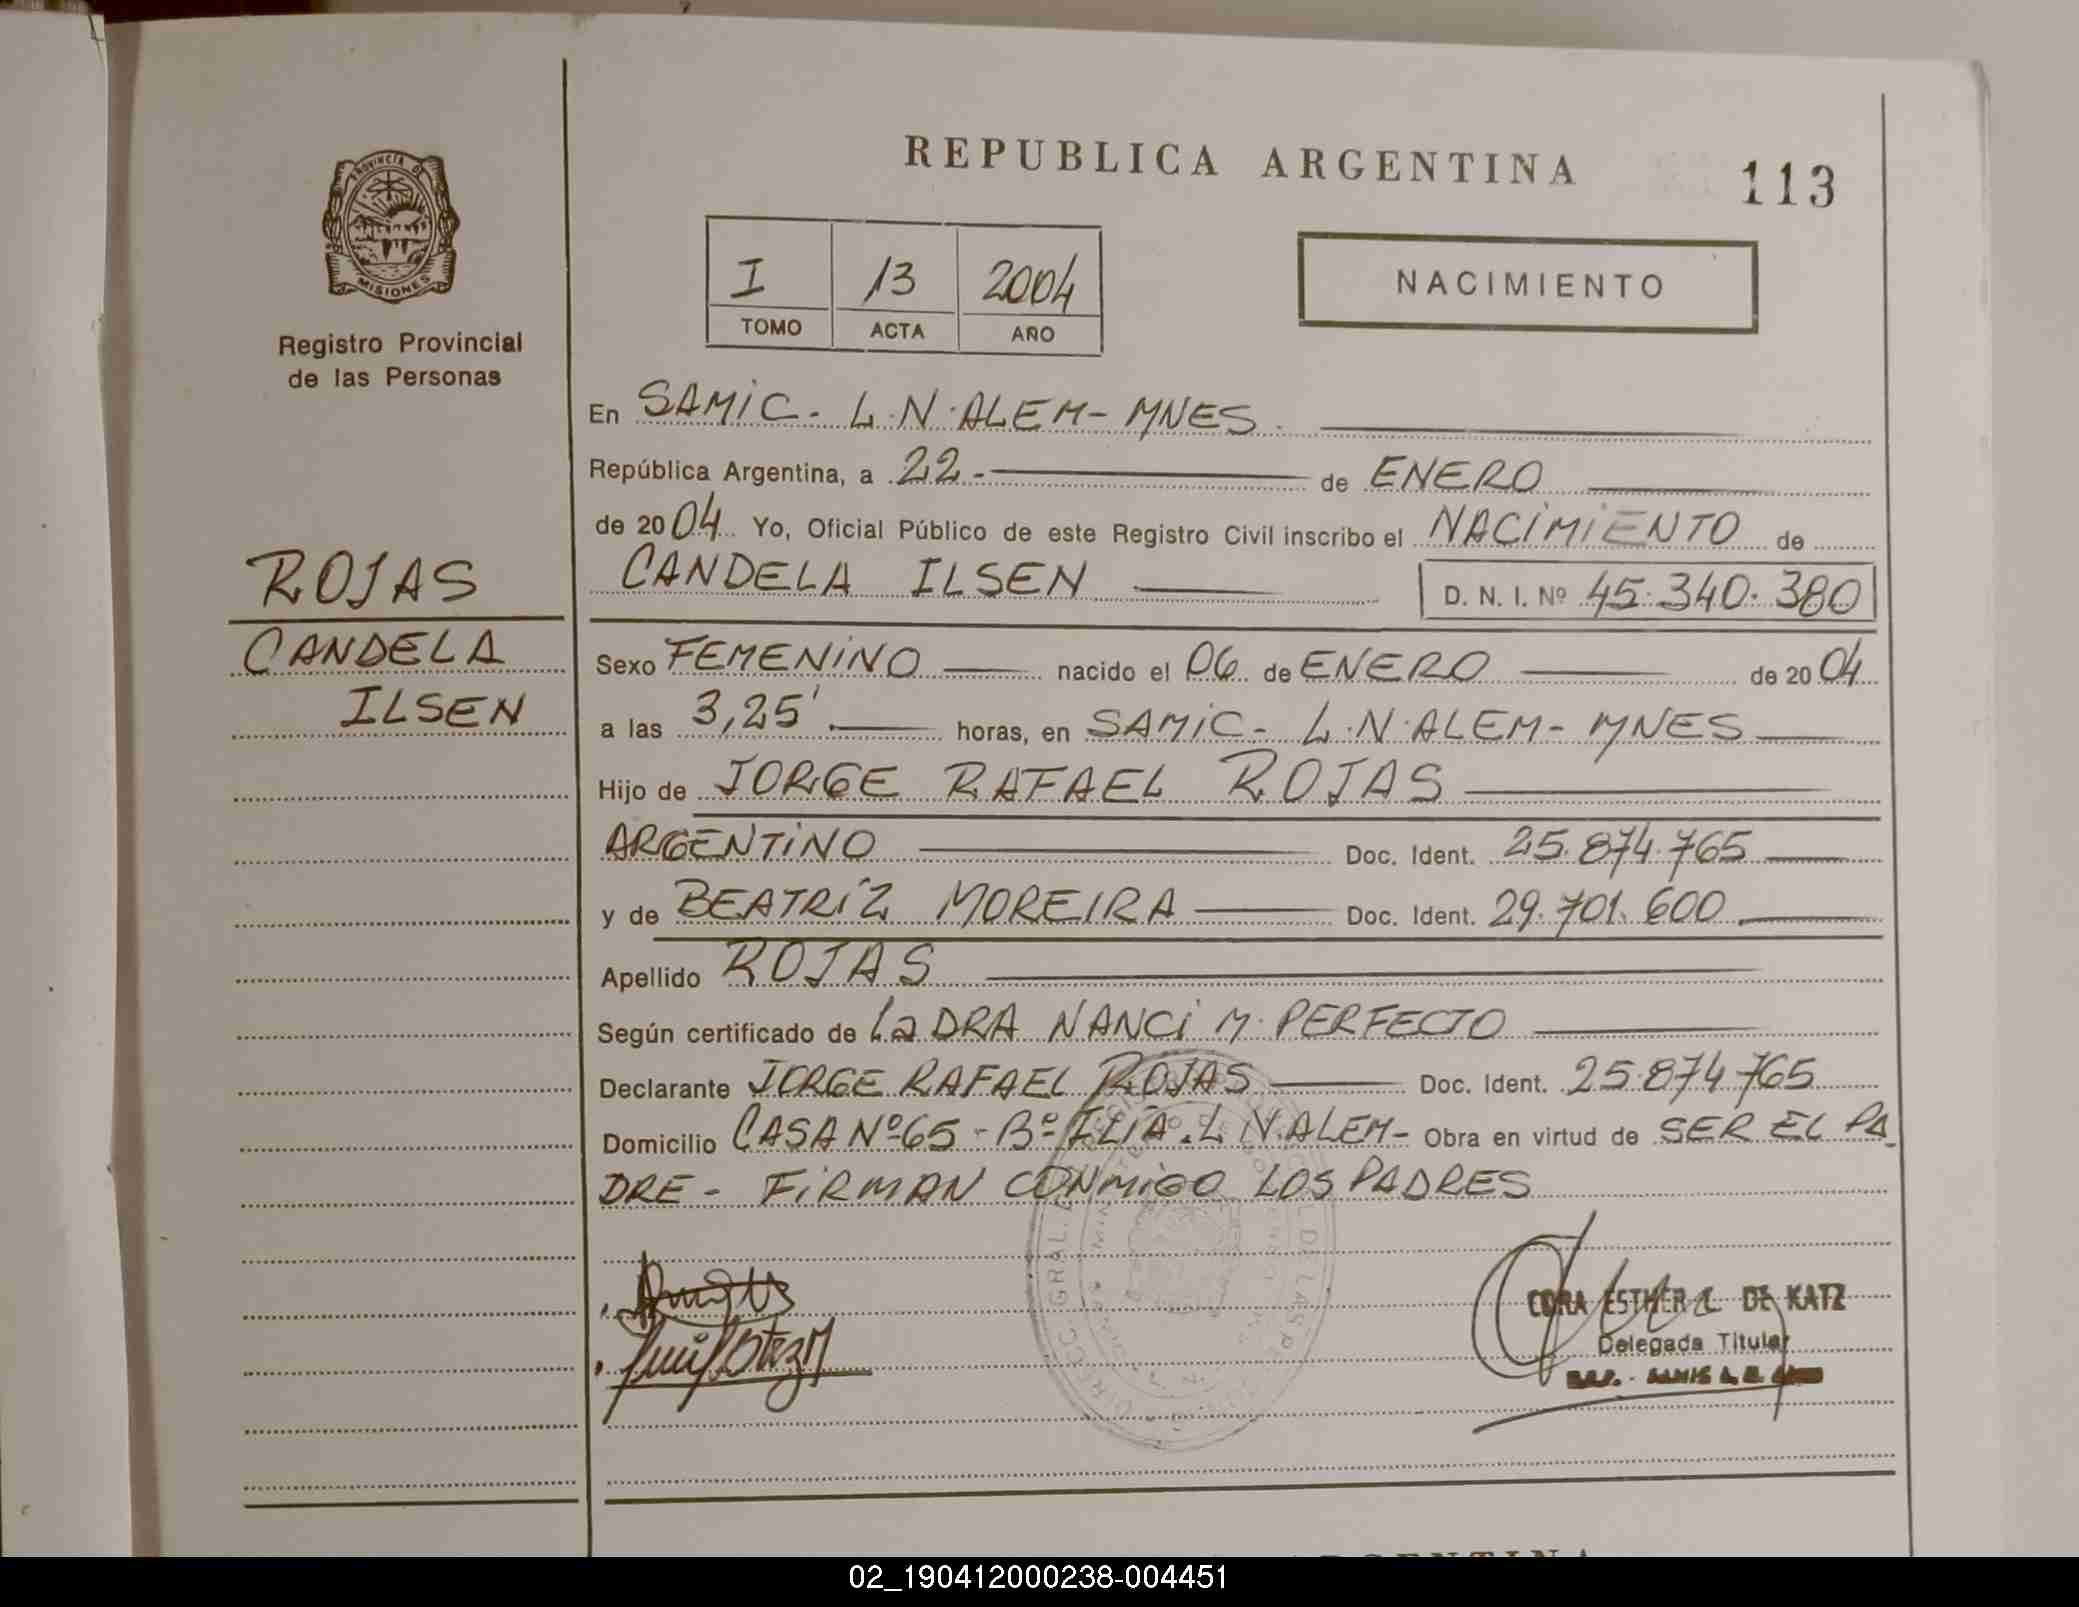 REPUBLICA ARGENTINA
113
PROVINCIA DE
MISIONES
Registro Provincial
de las Personas
I 13 2004
TOMO ACTA AÑO
NACIMIENTO
En SAMIC - L.N. ALEM - MNES.
República Argentina, a 22.- de ENERO
de 2004 Yo, Oficial Público de este Registro Civil inscribo el NACIMIENTO de
CANDELA ILSEN D. N. I. Nº 45.340.380
ROJAS
CANDELA
ILSEN
Sexo FEMENINO nacido el 06 de ENERO de 2004
a las 3,25' horas, en SAMIC - L.N. ALEM - MNES
Hijo de JORGE RAFAEL ROJAS
ARGENTINO Doc. Ident. 25.874.765
y de BEATRÍZ MOREIRA Doc. Ident. 29.701.600
Apellido ROJAS
Según certificado de La DRA NANCI M. PERFECTO
Declarante JORGE RAFAEL ROJAS Doc. Ident. 25.874.765
Domicilio CASA Nº 65 - Bº ILIA. L N. ALEM - Obra en virtud de SER EL PA
DRE - FIRMAN CONMIGO LOS PADRES
CORA ESTHER L. DE KATZ
Delegada Titular
02_190412000238-004451